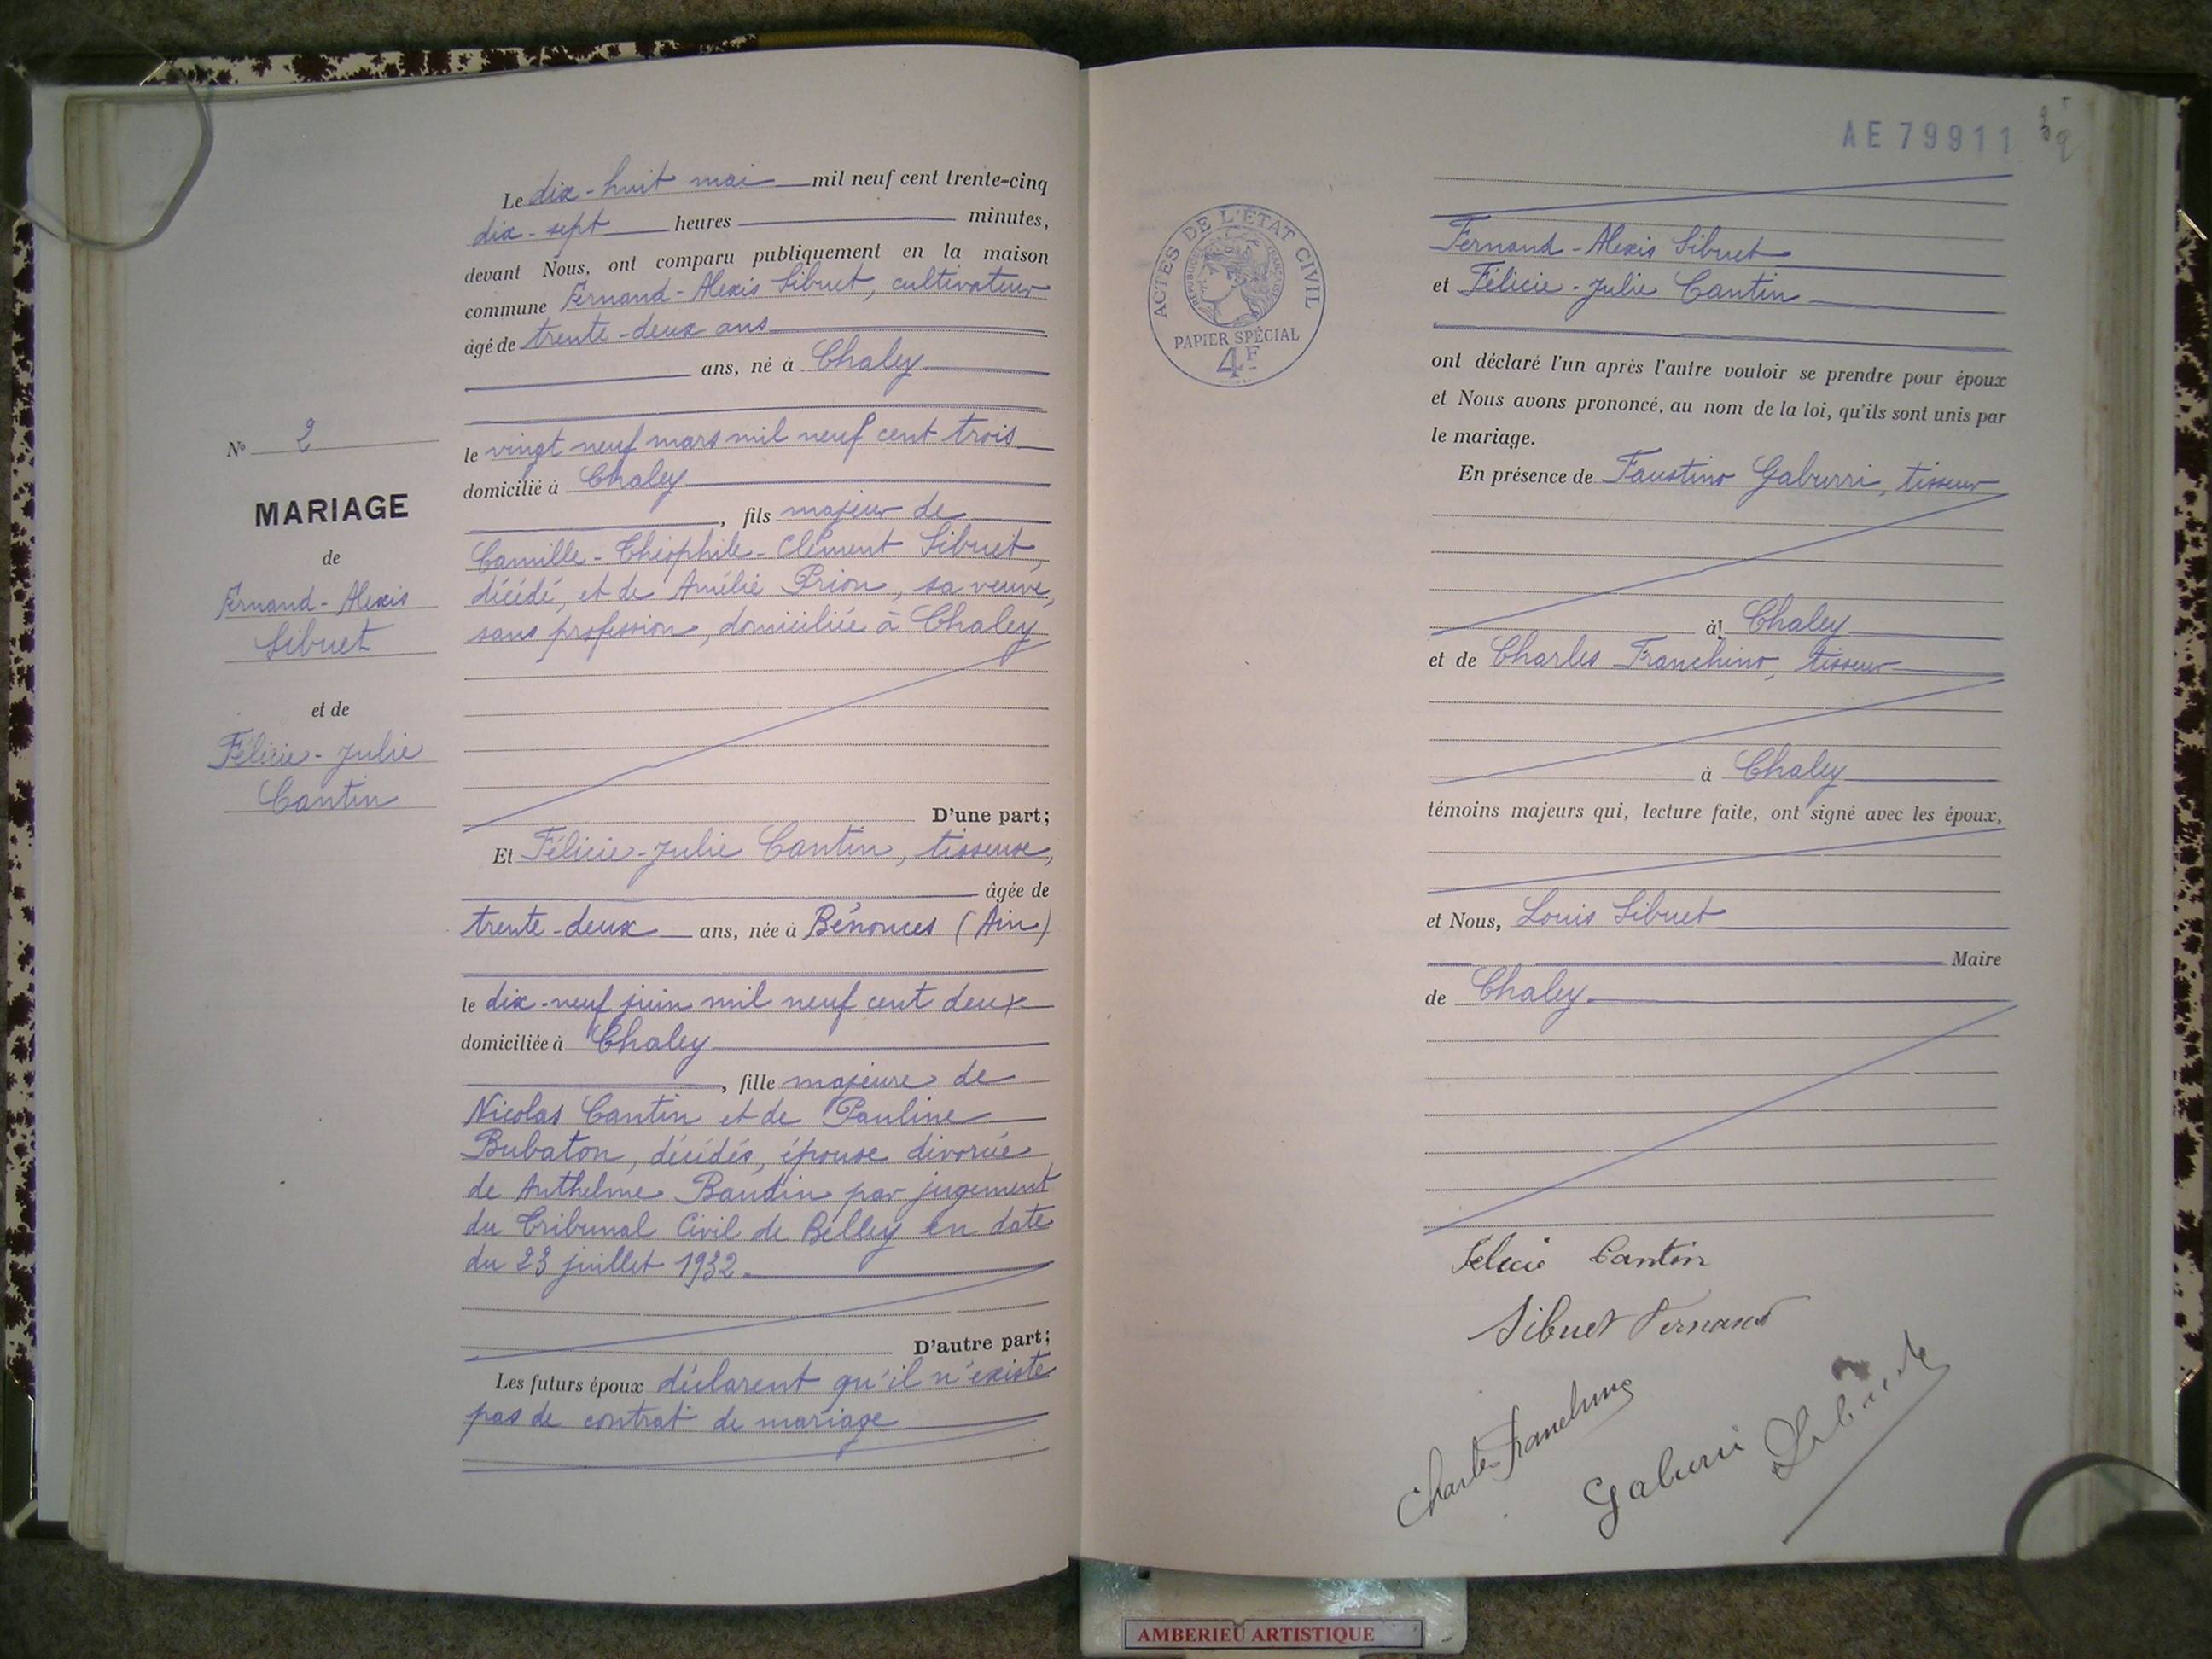 Le dix-huit mai mil neuf cent trente-cinq
dix-sept heures minutes,
devant Nous, ont comparu publiquement en la maison
commune Fernand-Alexis Sibuet, cultivateur
âgé de trente-deux ans
ans, né à Chaley
le vingt neuf mars mil neuf cent trois
domicilié à Chaley
, fils majeur de
Camille-Théophile-Clément Sibuet,
décédé, et de Amélie Prion, sa veuve,
sans profession, domiciliée à Chaley
D'une part;
Et Félicie-Julie Cantin, tisseuse,
âgée de
trente-deux ans, née à Bénonces (Ain)
le dix-neuf juin mil neuf cent deux
domiciliée à Chaley
, fille majeure de
Nicolas Cantin et de Pauline
Bubaton, décédés, épouse divorcée
de Anthelme Baudin par jugement
du Tribunal Civil de Belley en date
du 23 juillet 1932.
D'autre part;
Les futurs époux déclarent qu'il n'existe
pas de contrat de mariage
N° 2
MARIAGE
de
Fernand-Alexis
Sibuet
et de
Félicie-Julie
Cantin
AE 79911
ACTES DE L'ÉTAT CIVIL
RÉPUBLIQUE FRANÇAISE
PAPIER SPÉCIAL
4F
Fernand-Alexis Sibuet
et Félicie-Julie Cantin
ont déclaré l'un après l'autre vouloir se prendre pour époux
et Nous avons prononcé, au nom de la loi, qu'ils sont unis par
le mariage.
En présence de Faustino Gaburri, tisseur
à Chaley
et de Charles Franchino, tisseur
à Chaley
témoins majeurs qui, lecture faite, ont signé avec les époux,
et Nous, Louis Sibuet
Maire
de Chaley.
Felicie Cantin
Sibuet Fernand
Charles Franchino
Gaburri
Sibuet
AMBERIEU ARTISTIQUE